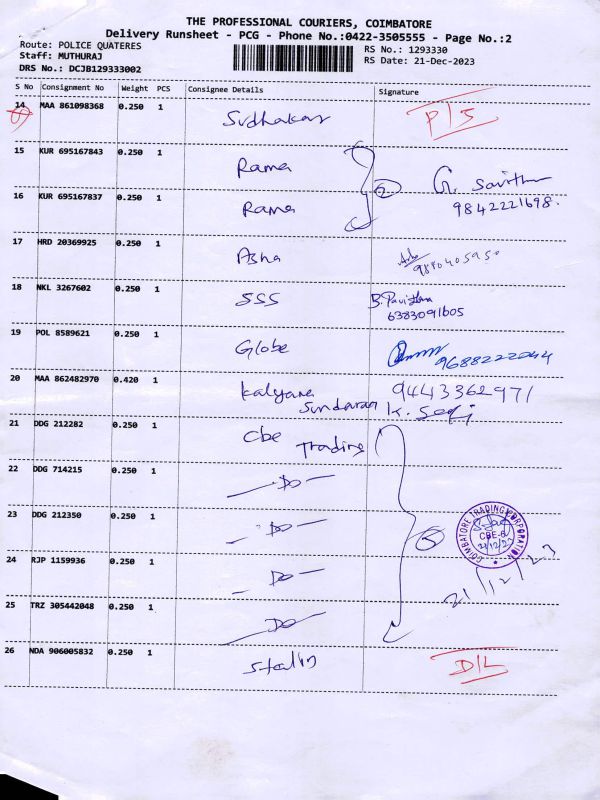 THE PROFESSIONAL COURIERS, COIMBATORE
Delivery Runsheet - PCG - Phone No.:0422-3505555 - Page No.:2
Route: POLICE QUATERES
Staff: MUTHURAJ
DRS No.: DCJB129333002
RS No.: 1293330
RS Date: 21-Dec-2023
S No Consignment No Weight PCS Consignee Details Signature
14 MAA 861098368 0.250 1 Sudhakar P/S
15 KUR 695167843 0.250 1 Rama
16 KUR 695167837 0.250 1 Rama
G. Savithri
9842221698.
17 HRD 20369925 0.250 1 Asha
9880405950
18 NKL 3267602 0.250 1 SSS B. Pavithra
6383091605
19 POL 8589621 0.250 1 Globe 9688222044
20 MAA 862482970 0.420 1 Kalyana Sundaram 9443362971
K.
21 DDG 212282 0.250 1 Cbe Trading
22 DDG 714215 0.250 1 — Do —
23 DDG 212350 0.250 1 — Do —
24 RJP 1159936 0.250 1 — Do —
25 TRZ 305442048 0.250 1 — Do —
5
COIMBATORE TRADING CORPORATION
CBE-6
21/12/23
21/12/23
26 NDA 906005832 0.250 1 Stalin D/L